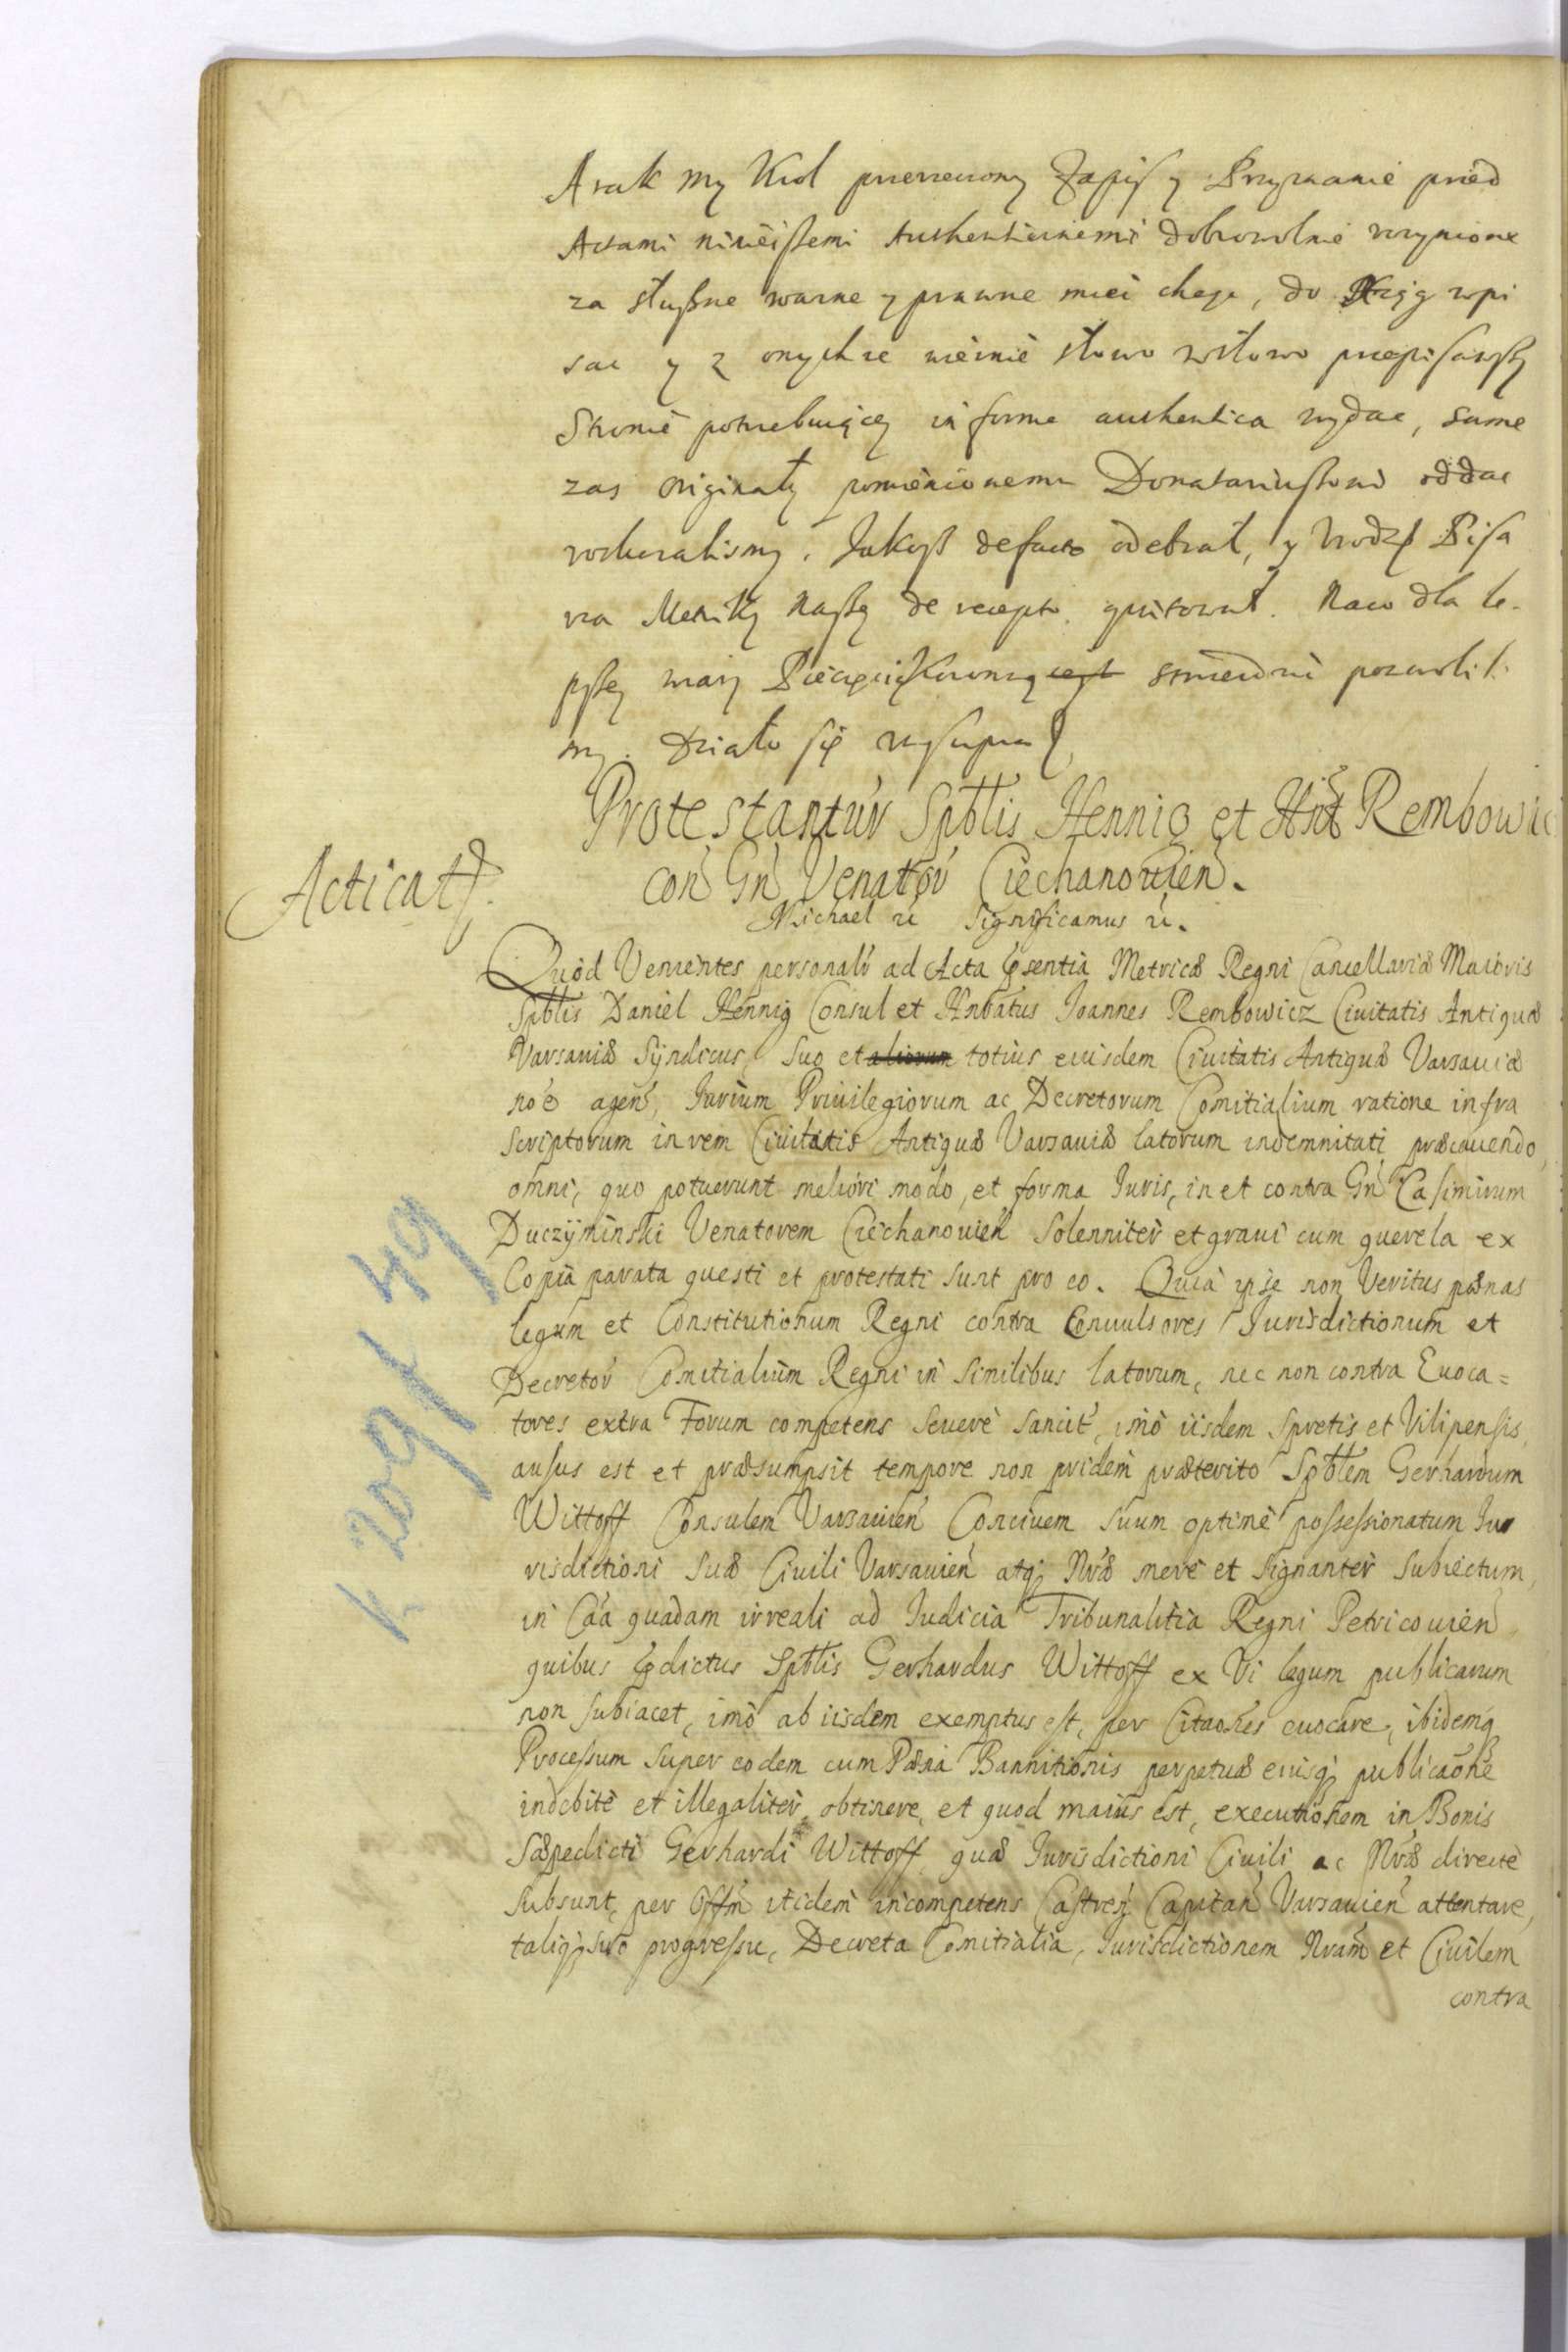 A tak My Krol przerzeczony Zapis y Przyznanie przed
Actami ninieiszemi Authenticznemi dobrowolnie uczynione
za słuszne wazne y prawne miec chcąc, do Xiąg wpi
sac y z onychze wiernie słowo w słowo przepisawszy
Stronie potrzebuiącey in forma authentica wydac, same
zas originały pomienionemu Donatariuszowi oddac
roskazalismy. Jakosz de facto odebrał, y Urodz Pisa
rza Metriki Naszey de recepto quitował. Naco dla le-
pszey wagi Pieczęc stwierdzic pozwolili-
my. Działo się ut supra
Protestantur Spblis Hennig et Hnt Rembowic
con Gn Venator Ciechanovien.
Acticat.
Michael etc Significamus etc.
Quod Venientes personalr ad Acta psentia Metricæ Regni Cancellariæ Maioris
Spblis Daniel Hennig Consul et Hnbatus Joannes Rembowicz Civitatis Antiquæ
Varsaviæ Syndicus, suo et aliorum totius eiusdem Civitatis Antiquæ Varsaviæ
noe agen, Jurium Privilegiorum ac Decretorum Comitialium ratione infra
scriptorum in rem Civitatis Antiquæ Varsaviæ latorum indemnitati præcavendo,
omni, quo potuerunt meliori modo, et forma Juris, in et contra Gn Casimirum
Duczyminski Venatorem Ciechanovien solenniter et gravi cum querela ex
Copia parata questi et protestati sunt pro eo. Quia ipse non Veritus pænas
legum et Constitutionum Regni contra Convulsores Jurisdictionum et
Decretor Comitialium Regni in similibus latorum, nec non contra Evoca=
tores extra Forum competens severe sancit, imo iisdem spretis et Vilipensis,
ausus est et præsumpsit tempore non pridem præterito Spblem Gerhardum
Wittoff Consulem Varsavien Concivem suum optime possessionatum Ju
risdictioni suæ Civili Varsavien atq Nræ mere et signanter subiectum,
in Caa quadam irreali ad Judicia Tribunalitia Regni Petricovien
quibus pdictus Spblis Gerhardus Wittoff ex Vi legum publicarum
non subiacet, imo ab iisdem exemptus est, per Citaones evocare, ibidemq
Processum super eodem cum Pæna Bannitionis perpetuæ eiusq publicaone
indebite et illegaliter obtinere, et quod maius est, executionem in Bonis
Sæpedicti Gerhardi Wittoff, quæ Jurisdictioni Civili ac Nræ directe
subsunt, per Offm itidem incompetens Castren Capitan Varsavien attentare,
taliq suo progressu, Decreta Comitialia, Jurisdictionem Nram et Civilem
contra